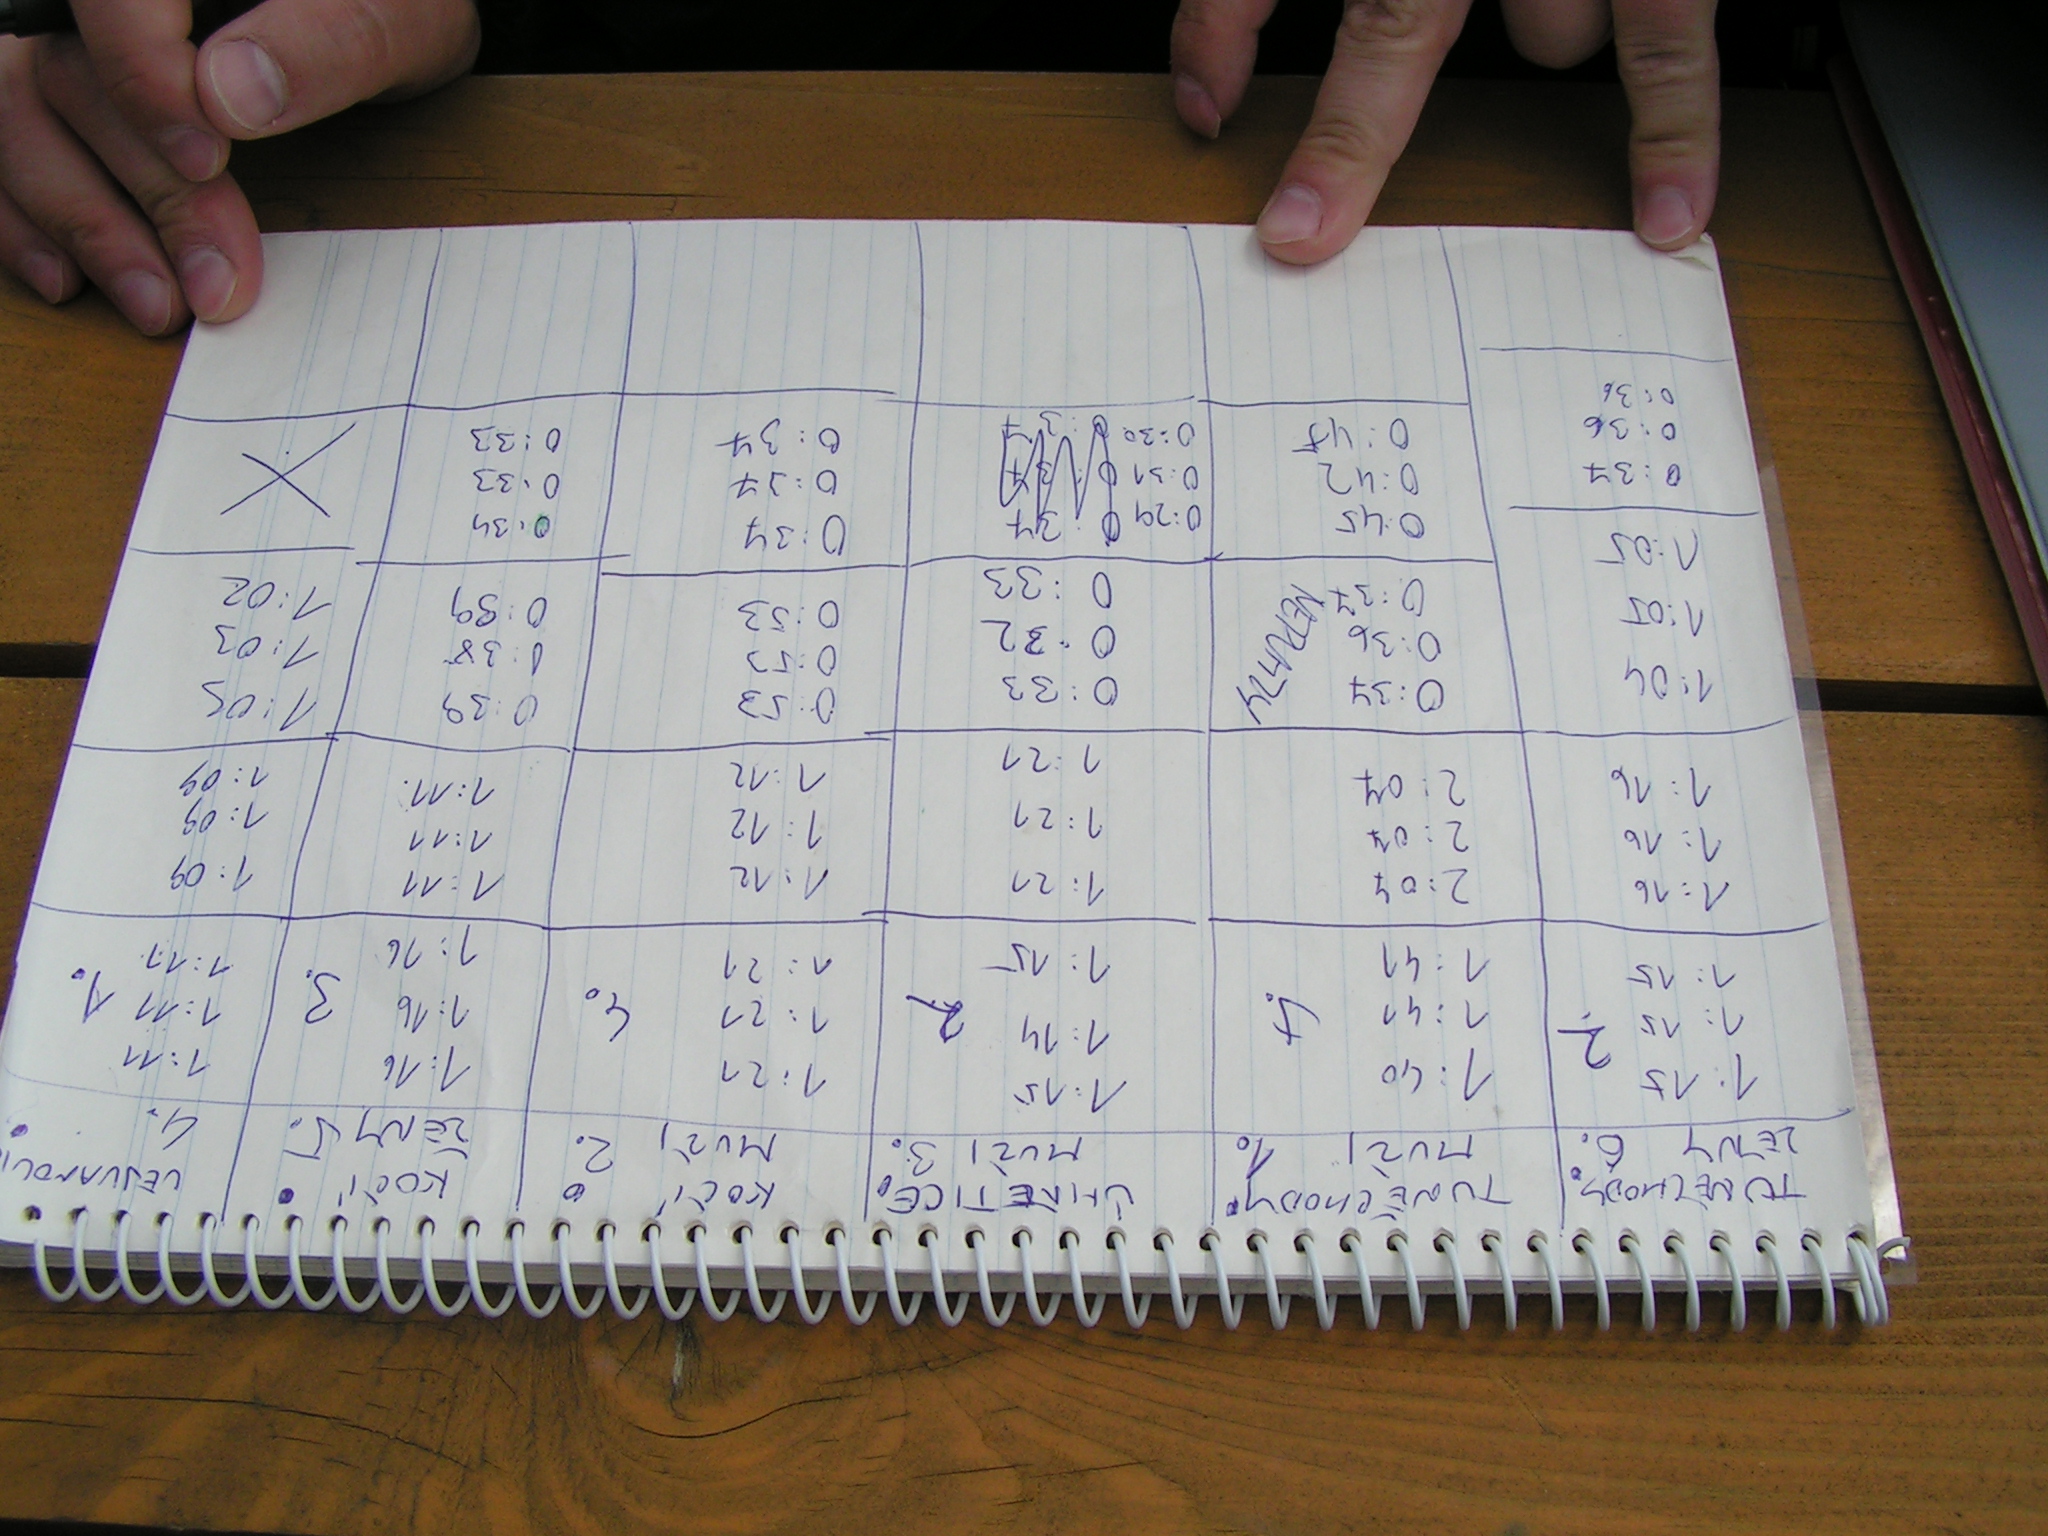 TUNĚCHODY
ŽENY 6.
1:15
1:15 2.
1:15
1:16
1:16
1:16
1:04
1:05
1:05
0:37
0:36
0:36
TUNĚCHODY
MUŽI 1.
1:40
1:41 5.
1:41
2:07
2:07
2:07
0:37
0:36
0:37
0:45
0:42
0:45
ÚHŘETICE
MUŽI 3.
1:15
1:14 2.
1:15
1:21
1:21
1:21
0:33
0:32
0:33
0:29
0:31
0:30
KOČÍ
MUŽI 2.
1:21
1:21 4.
1:21
1:12
1:12
1:12
0:53
0:53
0:53
0:37
0:37
0:37
KOČÍ
ŽENY 5.
1:16
1:16 3.
1:16
1:11
1:11
1:11
0:39
0:38
0:39
0:34
0:33
0:33
4.
1:11
1:11 1.
1:11
1:09
1:09
1:09
1:05
1:03
1:02